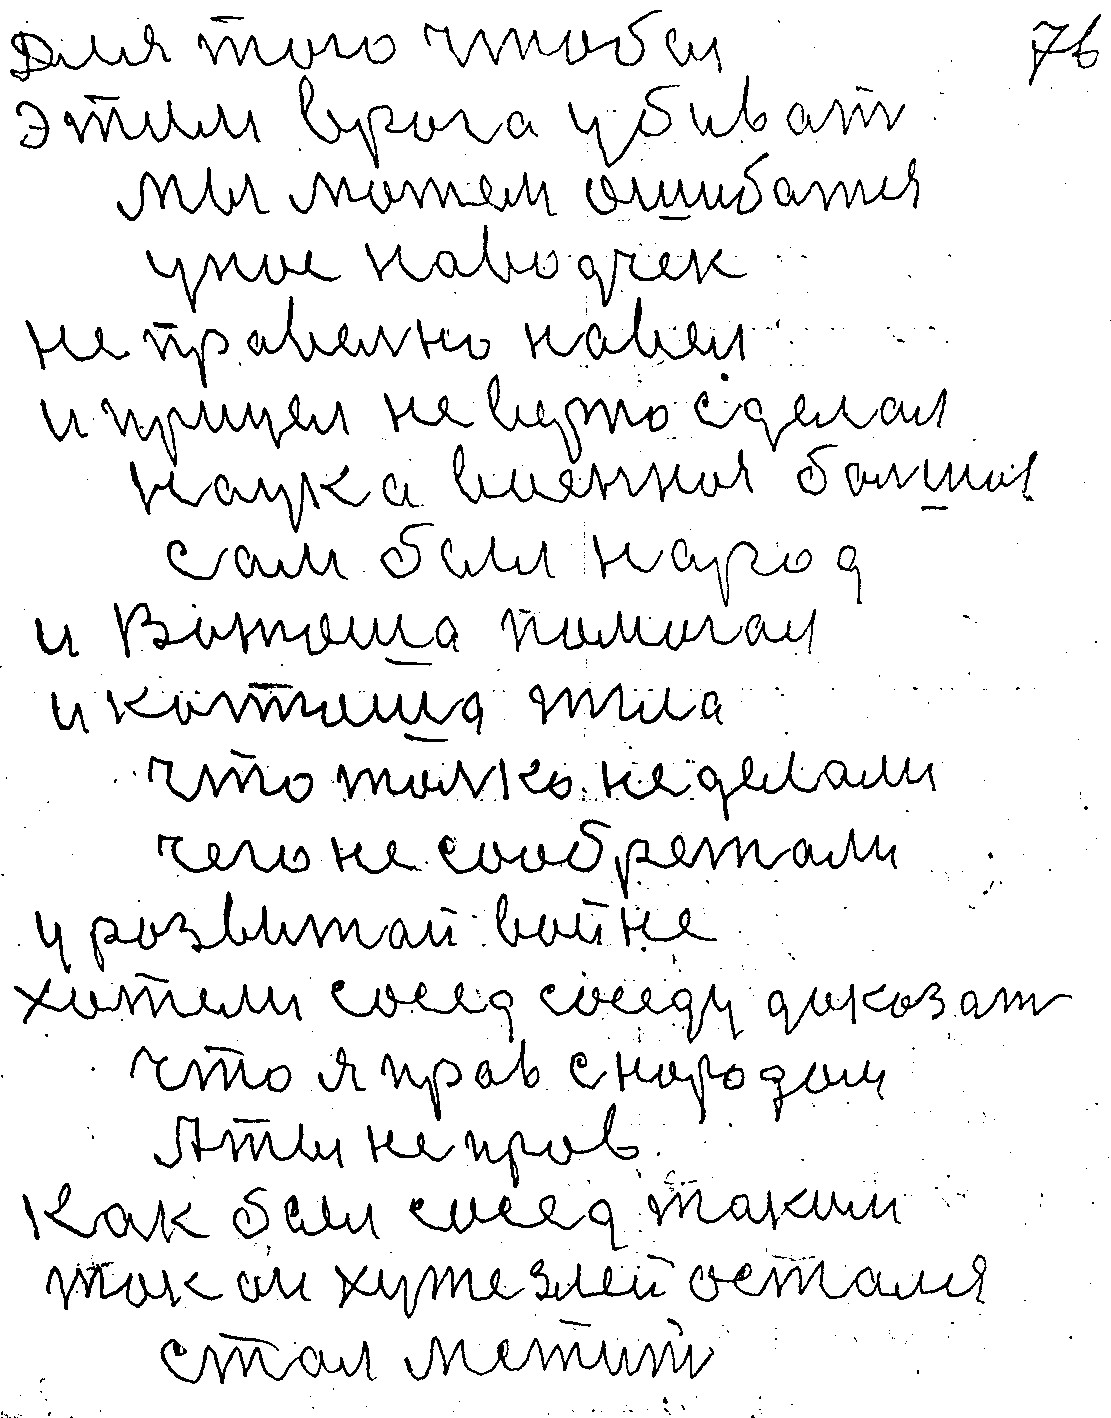 Для того чтобы 76
этим врога убиват
мыможем ошибатя
уное наводчек
не правелно навел
и прицел не верно сделал
наука военная болшоя
сам был народ
и Вотоша помогал
и котюша жгла
что толко не делали
чего не сообретали
у розвитай войне
хотели сосед соседу доказат
что я прав с нородом
А ты не пров
Как был сосед таким
ток он хуже злей осталя
стал метит